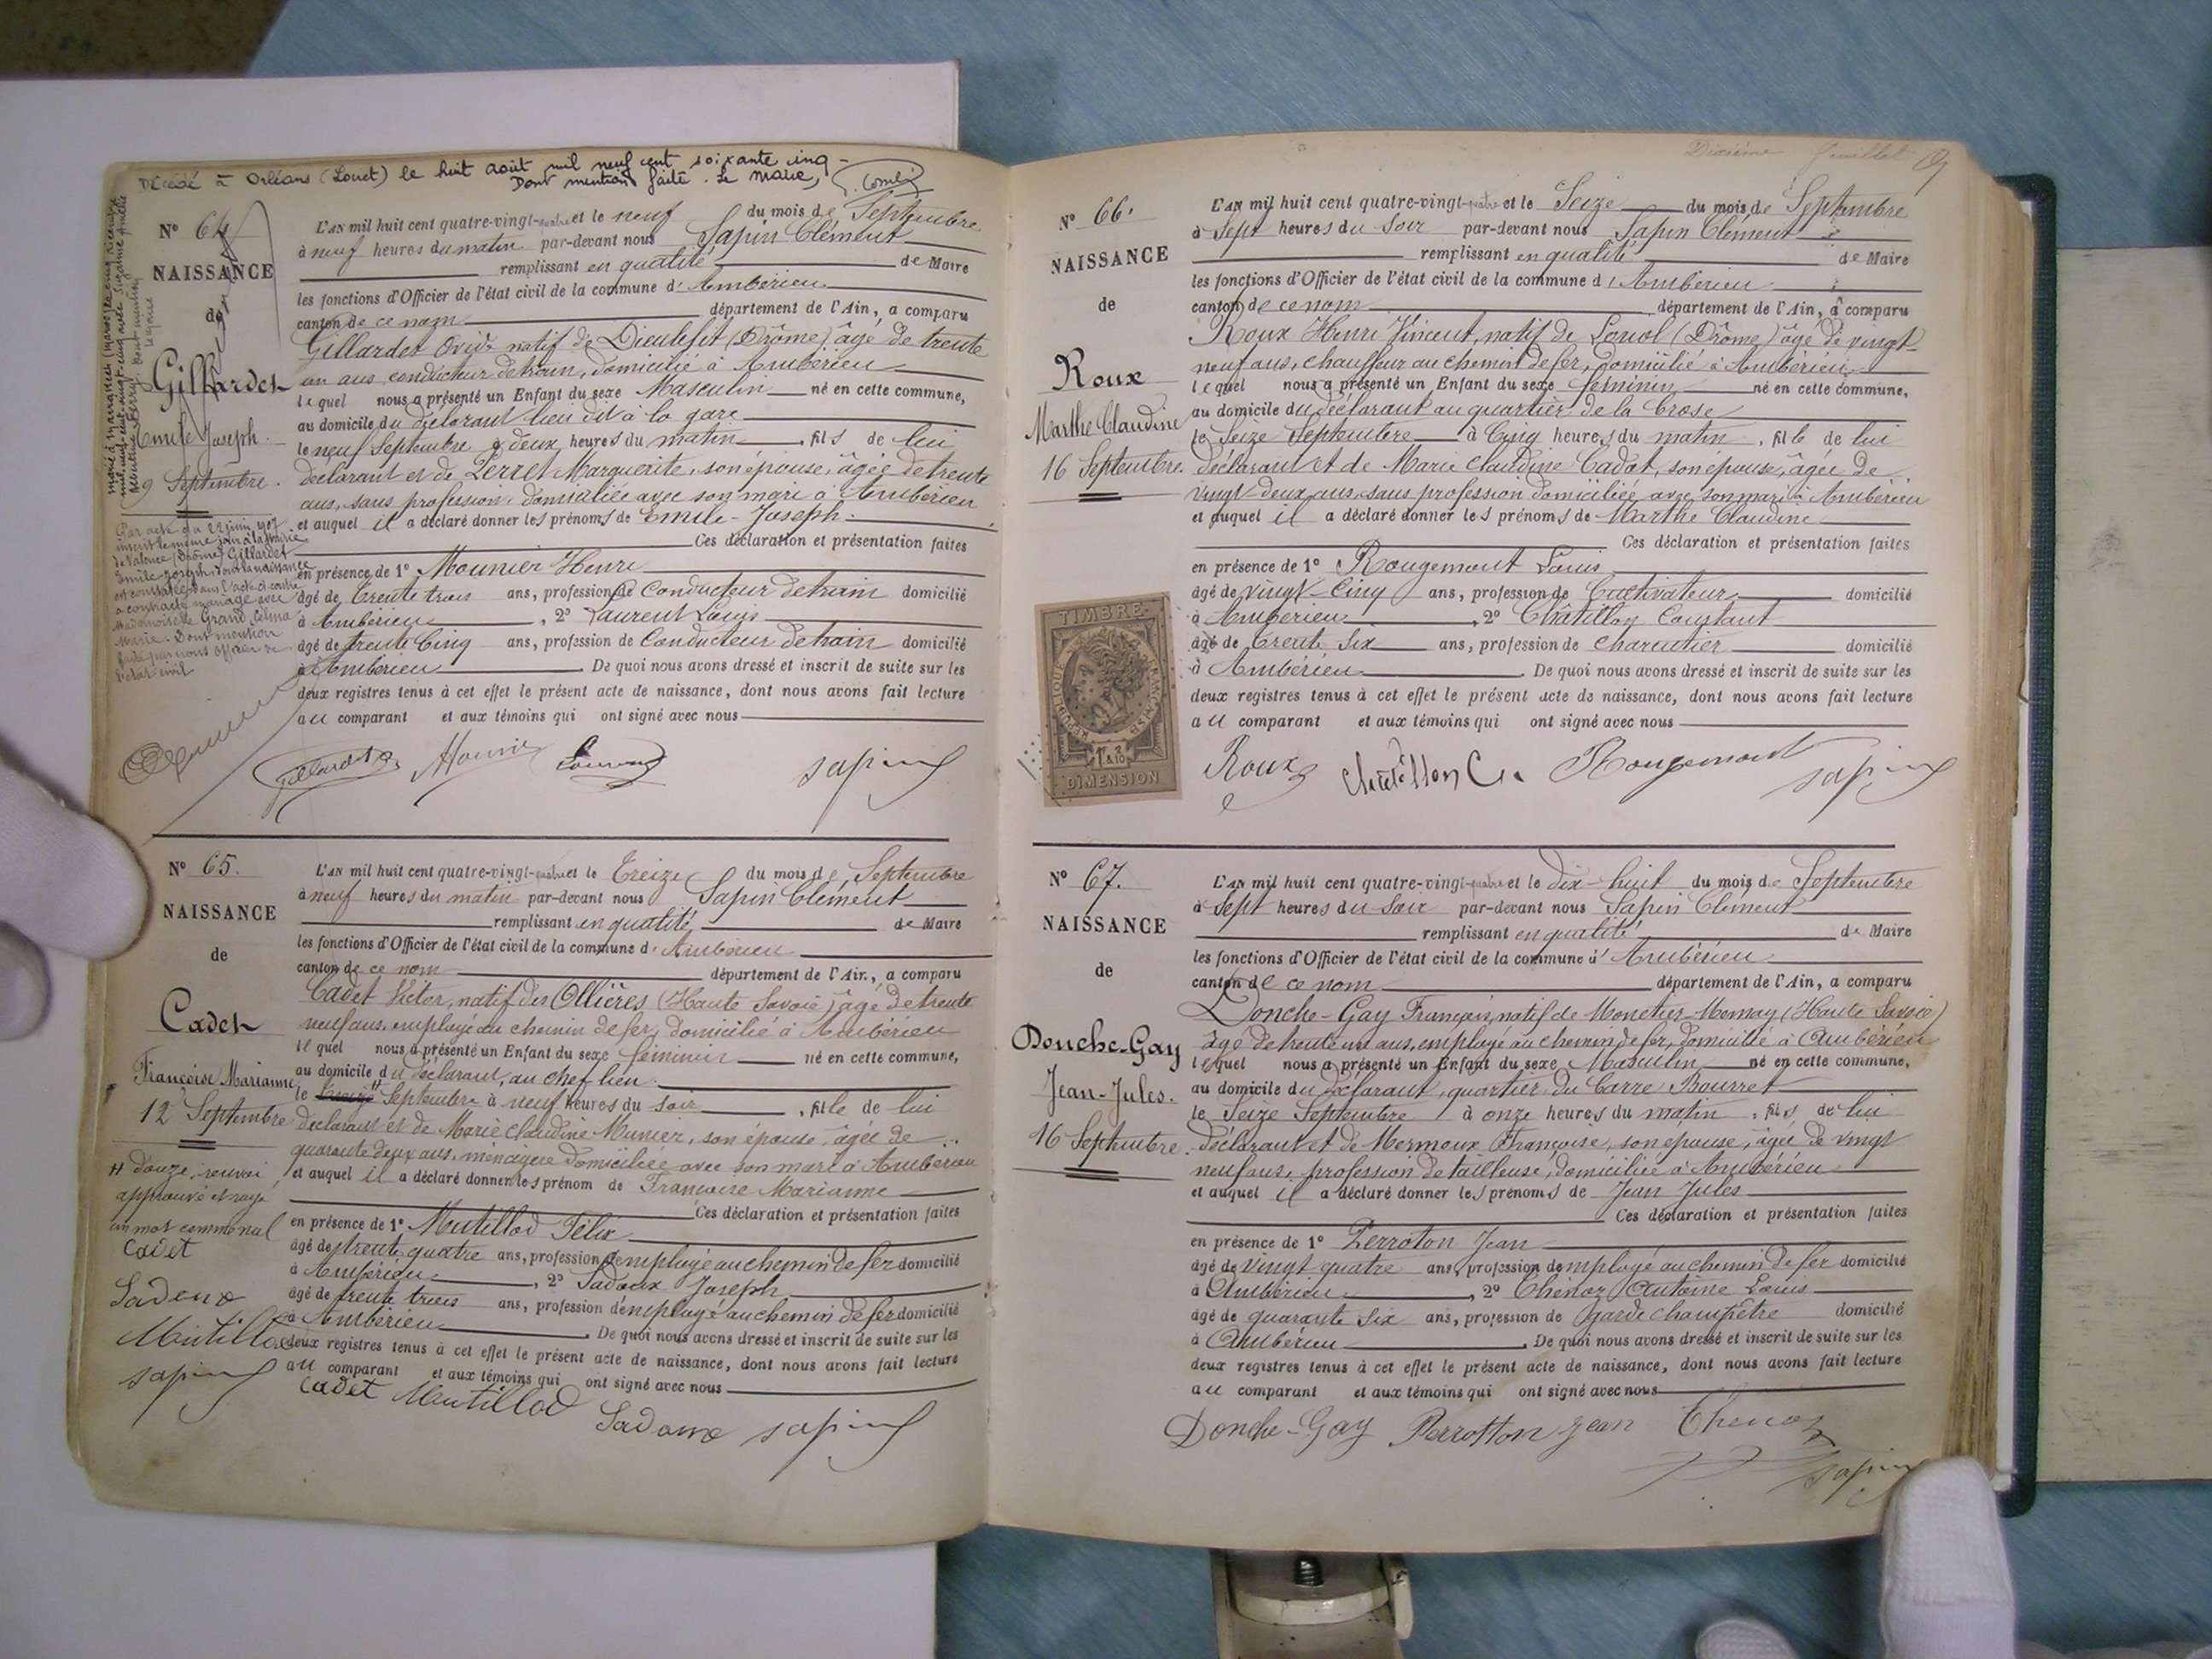 Décédé à Orléans (Loiret) le huit août mil neuf cent soixante cinq -
Dont mention faite. Le Maire,
N° 64
NAISSANCE
de
Gillardet
Emile Joseph.
9 Septembre.
Par acte du 22 juin 1907
inscrit le même jour à la Mairie
de Valence (Drôme) Gillardet
Emile Joseph, dont la naissance
est constatée dans l'acte ci contre
a contracté mariage avec
Mademoiselle Grand Celina
Marie. Dont mention
faite par nous officier de
l'état civil
L'AN mil huit cent quatre-vingt-quatre et le neuf du mois de Septembre
à neuf heures du matin par-devant nous Sapin Clément
remplissant en qualité de Maire
les fonctions d'Officier de l'état civil de la commune d'Ambérieu
canton de ce nom département de l'Ain, a comparu
Gillardet Ovide natif de Dieulefit (Drôme) âgé de trente
un ans conducteur de train, domicilié à Ambérieu
lequel nous a présenté un Enfant du sexe Masculin né en cette commune,
au domicile du déclarant lieu dit à la gare
le neuf Septembre à deux heures du matin, fils de lui
déclarant et de Perret Marguerite, son épouse, âgée de trente
ans, sans profession, domiciliée avec son mari à Ambérieu
et auquel il a déclaré donner les prénoms de Emile-Joseph.
Ces déclaration et présentation faites
en présence de 1° Mounier Henri
âgé de trente trois ans, profession de Conducteur de train domicilié
à Ambérieu, 2° Laurent Louis
âgé de trente cinq ans, profession de Conducteur de train domicilié
à Ambérieu. De quoi nous avons dressé et inscrit de suite sur les
deux registres tenus à cet effet le présent acte de naissance, dont nous avons fait lecture
au comparant et aux témoins qui ont signé avec nous
Gillardet Mounier Laurent Sapin
N° 65.
NAISSANCE
de
Cadet
Françoise Marianne
12 Septembre
H douze, renvoi
approuvé et rayé
un mot comme nul
Cadet
Sadoux
Mutillod
Sapin
L'AN mil huit cent quatre-vingt-quatre et le Treize du mois de Septembre
à neuf heures du matin par-devant nous Sapin Clément
remplissant en qualité de Maire
les fonctions d'Officier de l'état civil de la commune d'Ambérieu
canton de ce nom département de l'Ain, a comparu
Cadet Victor, natif des Ollières (Haute Savoie) âgé de trente
neuf ans, employé au chemin de fer, domicilié à Ambérieu
lequel nous a présenté un Enfant du sexe féminin né en cette commune,
au domicile du déclarant, au chef lieu
le treize H Septembre à neuf heures du soir, fille de lui
déclarant et de Marie Claudine Munier, son épouse, âgée de
quarante deux ans, ménagère domiciliée avec son mari à Ambérieu
et auquel il a déclaré donner les prénom de Françoise Marianne
Ces déclaration et présentation faites
en présence de 1° Mutillod Félix
âgé de trente quatre ans, profession d'employé au chemin de fer domicilié
à Ambérieu, 2° Sadoux Joseph
âgé de trente trois ans, profession d'employé au chemin de fer domicilié
à Ambérieu. De quoi nous avons dressé et inscrit de suite sur les
deux registres tenus à cet effet le présent acte de naissance, dont nous avons fait lecture
au comparant et aux témoins qui ont signé avec nous
Cadet Mutillod Sadoux Sapin
Dixième feuillet
N° 66.
NAISSANCE
de
Roux
Marthe Claudine
16 Septembre.
TIMBRE
REPUBLIQUE FRANÇAISE
DIMENSION
L'AN mil huit cent quatre-vingt-quatre et le Seize du mois de Septembre
à Sept heures du Soir par-devant nous Sapin Clément
remplissant en qualité de Maire
les fonctions d'Officier de l'état civil de la commune d'Ambérieu
canton de ce nom département de l'Ain, a comparu
Roux Henri Vincent, natif de Loriol (Drôme) âgé de vingt
neuf ans, chauffeur au chemin de fer, domicilié à Ambérieu
lequel nous a présenté un Enfant du sexe féminin né en cette commune,
au domicile du déclarant au quartier de la Crose
le Seize Septembre à Cinq heures du matin, fille de lui
déclarant et de Marie Claudine Cadot, son épouse, âgée de
vingt-deux ans, sans profession domiciliée avec son mari à Ambérieu
et auquel il a déclaré donner les prénoms de Marthe Claudine
Ces déclaration et présentation faites
en présence de 1° Rougemont Louis
âgé de vingt-cinq ans, profession de Cultivateur domicilié
à Ambérieu, 2° Châtillon Constant
âgé de trente six ans, profession de charcutier domicilié
à Ambérieu. De quoi nous avons dressé et inscrit de suite sur les
deux registres tenus à cet effet le présent acte de naissance, dont nous avons fait lecture
au comparant et aux témoins qui ont signé avec nous
Roux Châtillon C. Rougemont Sapin
N° 67.
NAISSANCE
de
Donche-Gay
Jean-Jules.
16 Septembre.
L'AN mil huit cent quatre-vingt-quatre et le dix-huit du mois de Septembre
à Sept heures du Soir par-devant nous Sapin Clément
remplissant en qualité de Maire
les fonctions d'Officier de l'état civil de la commune d'Ambérieu
canton de ce nom département de l'Ain, a comparu
Donche-Gay François, natif de Monetier-Mornay (Haute Savoie)
âgé de trente un ans, employé au chemin de fer, domicilié à Ambérieu
lequel nous a présenté un Enfant du sexe Masculin né en cette commune,
au domicile du déclarant, quartier du Carre Bourret
le Seize Septembre à onze heures du matin, fils de lui
déclarant et de Mermoux Françoise, son épouse, âgée de vingt
neuf ans, profession de tailleuse, domiciliée à Ambérieu
et auquel il a déclaré donner les prénoms de Jean Jules
Ces déclaration et présentation faites
en présence de 1° Perroton Jean
âgé de vingt quatre ans, profession d'employé au chemin de fer domicilié
à Ambérieu, 2° Thénoz Antoine Louis
âgé de quarante six ans, profession de garde champêtre domicilié
à Ambérieu. De quoi nous avons dressé et inscrit de suite sur les
deux registres tenus à cet effet le présent acte de naissance, dont nous avons fait lecture
au comparant et aux témoins qui ont signé avec nous
Donche-Gay Perrotton Jean Thenoz
Sapin